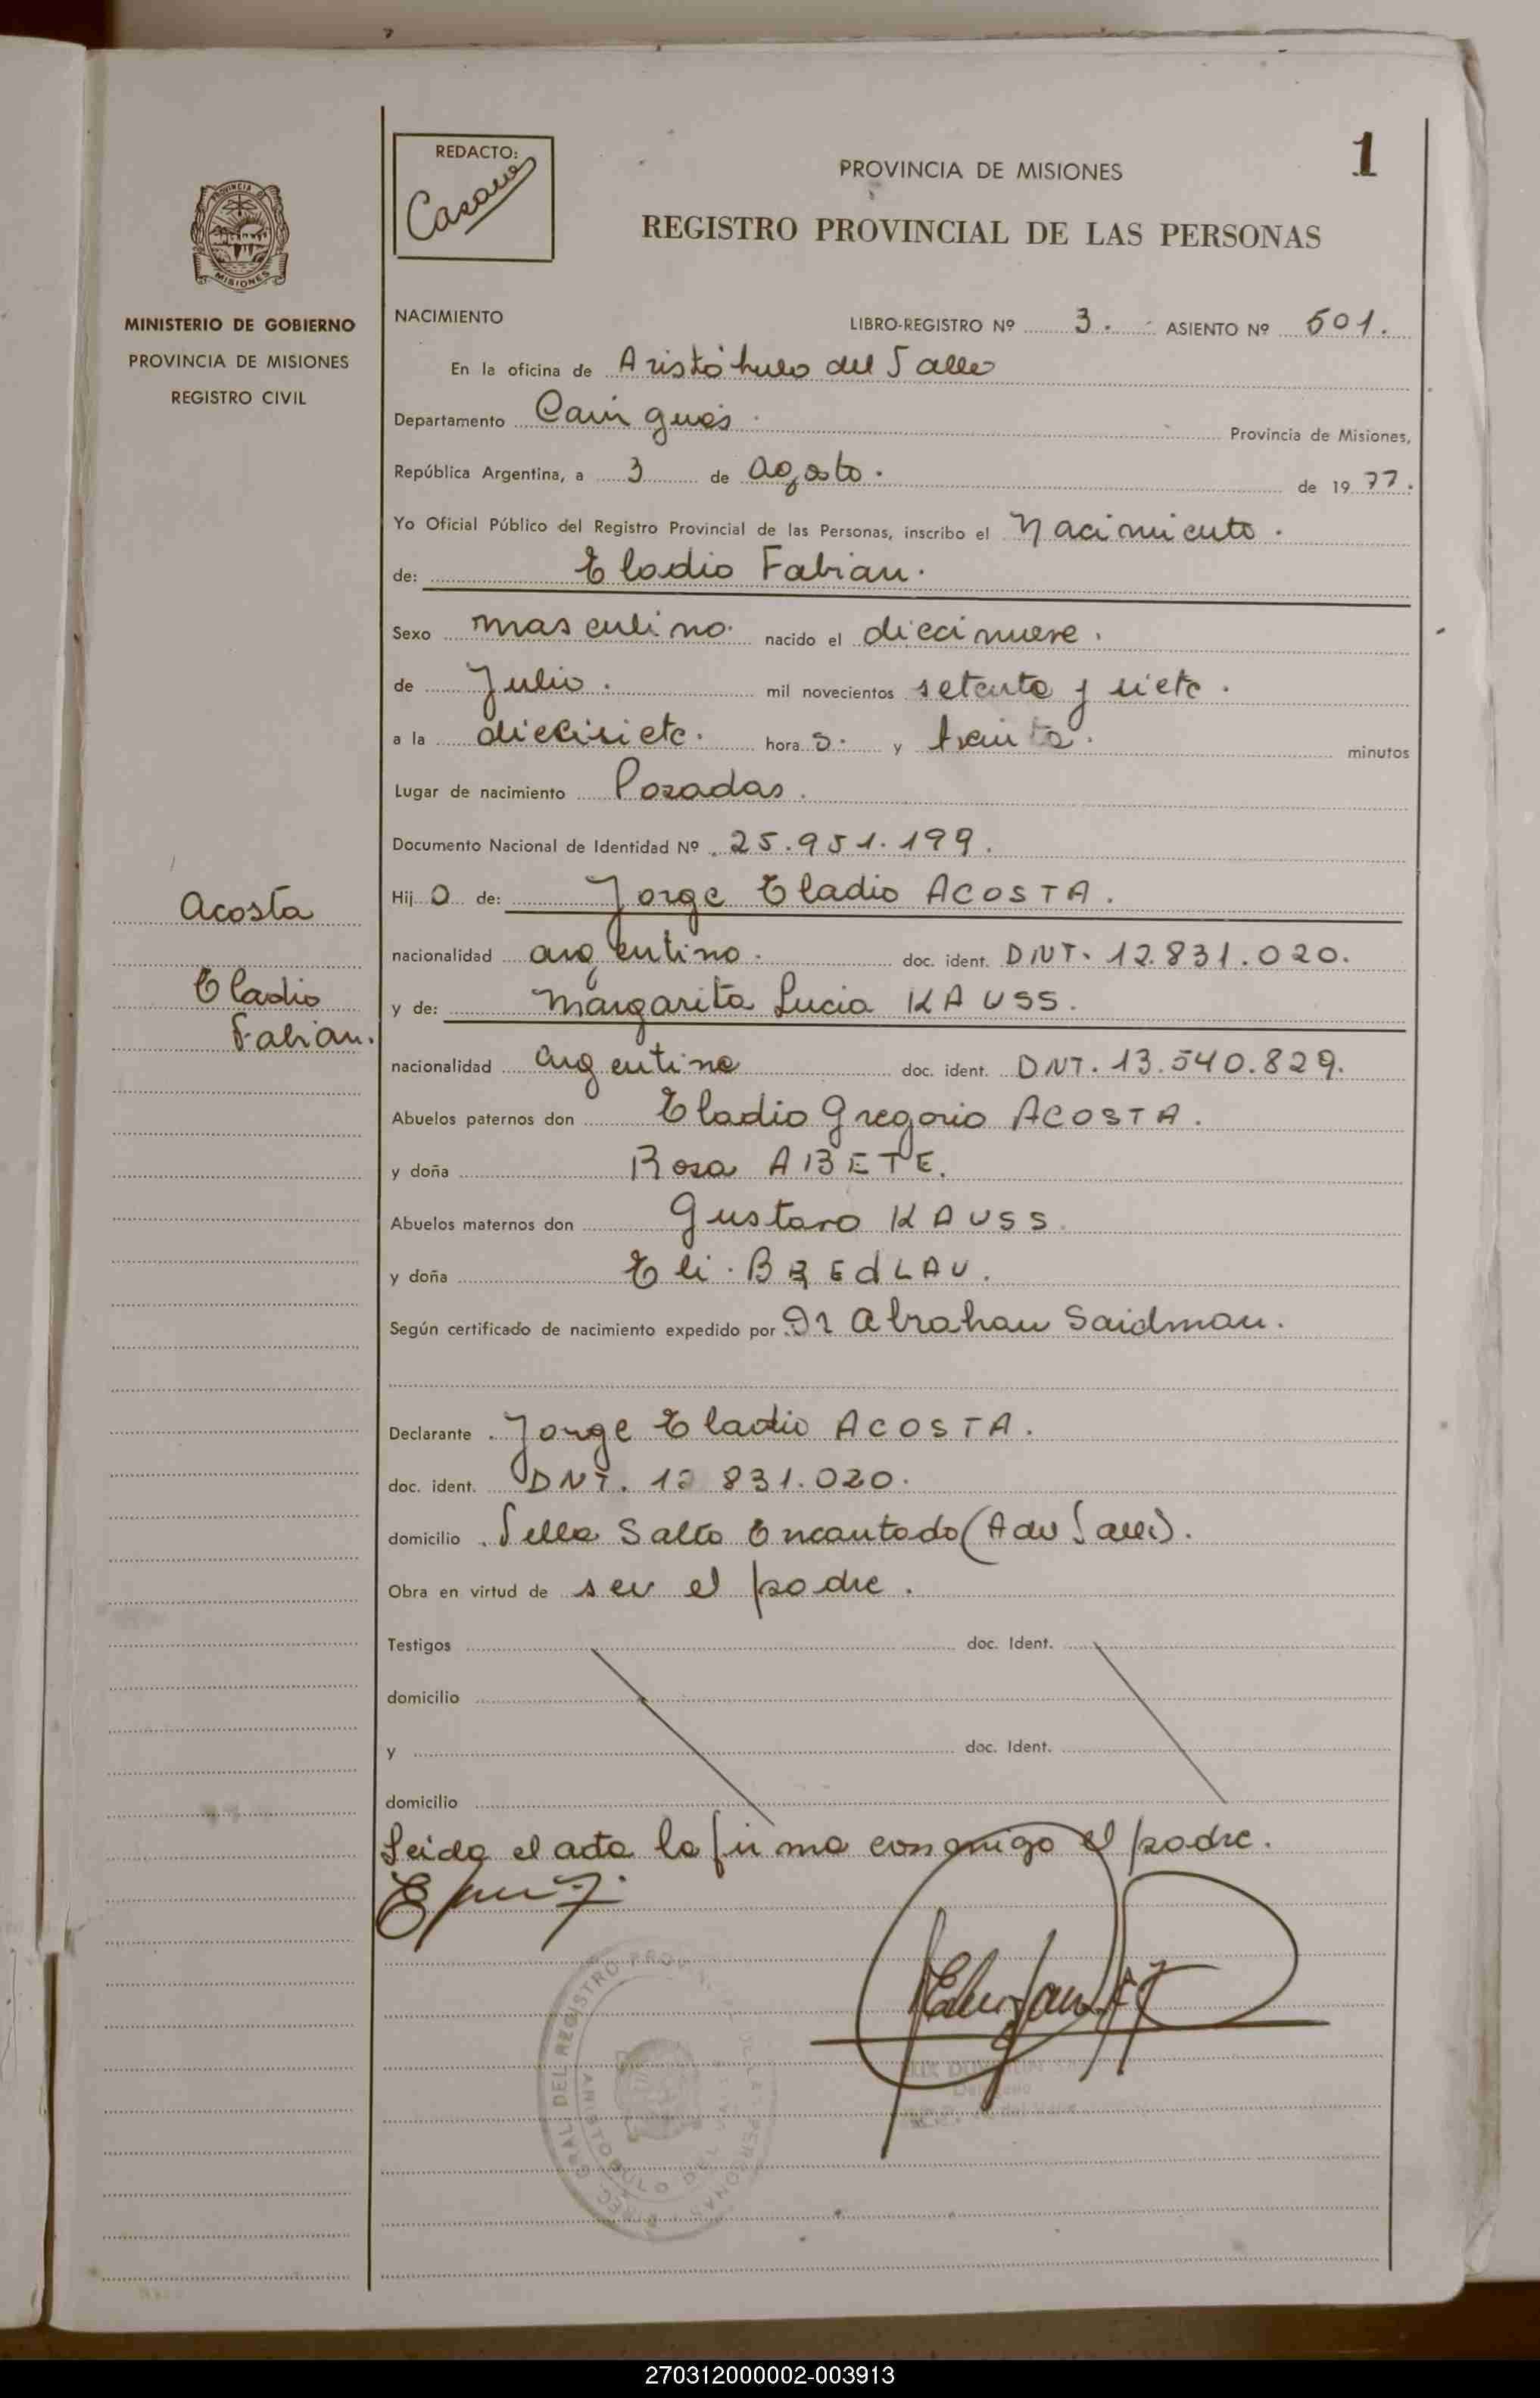 1
REDACTO:
PROVINCIA DE MISIONES
REGISTRO PROVINCIAL DE LAS PERSONAS
PROVINCIA DE
MISIONES
MINISTERIO DE GOBIERNO
PROVINCIA DE MISIONES
REGISTRO CIVIL
NACIMIENTO
LIBRO-REGISTRO Nº 3. ASIENTO Nº 501.
En la oficina de Aristóbulo del Valle
Departamento Cainguás. Provincia de Misiones,
República Argentina, a 3 de agosto. de 1977.
Yo Oficial Público del Registro Provincial de las Personas, inscribo el Nacimiento.
de: Eladio Fabian.
Sexo masculino. nacido el diecinueve.
de Julio. mil novecientos setenta y siete.
a la diecisiete. hora s. y treinta. minutos
Lugar de nacimiento Posadas.
Documento Nacional de Identidad Nº 25.951.199.
Acosta
Hij o de: Jorge Eladio ACOSTA.
nacionalidad argentino. doc. ident. DNI. 12.831.020.
Eladio
Fabian.
y de: Margarita Lucia KAUSS.
nacionalidad argentina doc. ident. DNI. 13.540.829.
Abuelos paternos don Eladio Gregorio ACOSTA.
y doña Rosa ABETE.
Abuelos maternos don Gustavo KAUSS.
y doña Eli. BREdLAU.
Según certificado de nacimiento expedido por Dr Abrahan Saidman.
Declarante Jorge Eladio ACOSTA.
doc. ident. DNI. 12 831.020.
domicilio Salto Encantado (A del Valle).
Obra en virtud de ser el padre.
Testigos doc. Ident.
domicilio
y doc. Ident.
domicilio
Leida el acta la firma conmigo el padre.
GRAL DEL REGISTRO PROV DE LAS PERSONAS
ARISTOBULO DEL VALLE
270312000002-003913